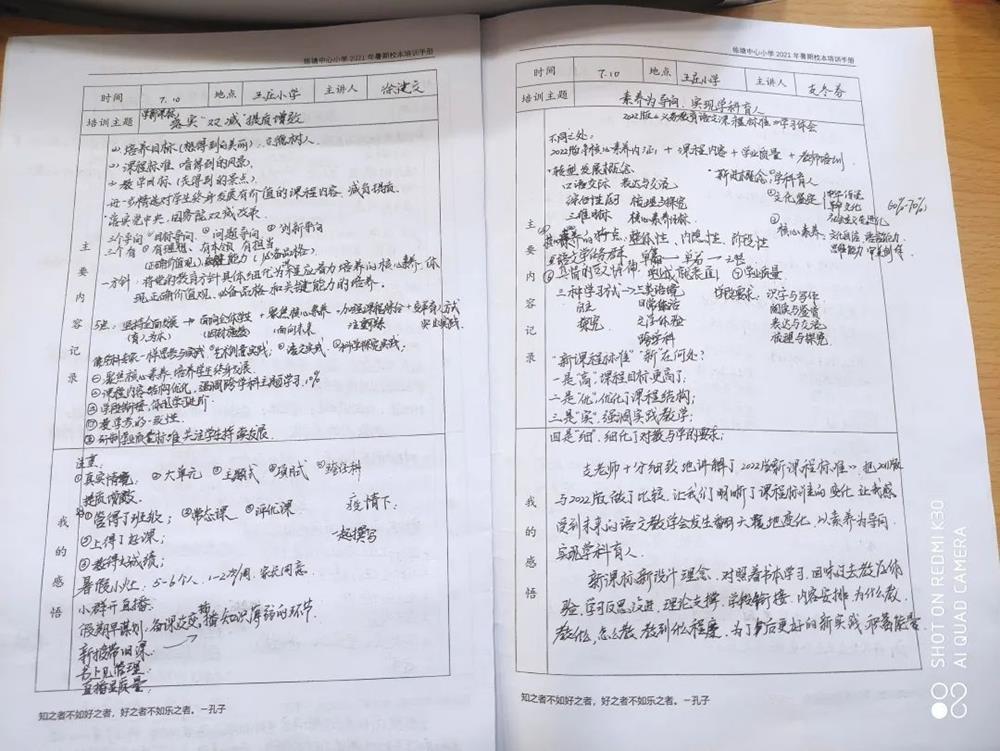 练塘中心小学2021年暑期校本培训手册
时间 7.10 地点 王庄小学 主讲人 徐建文
培训主题 学新课标 落实"双减"提质增效
主要内容记录
(1)培养目标(想得到的美丽),立德树人。
(2)课程标准 看得到的风景,
(3)教学目标(走得到的景点)
进一步精选对学生终身发展有价值的课程内容,减负提质。
落实党中央、国务院双减改革.
三个导向 ①目标导向 ②问题导向 ③创新导向
三个有 ①有理想、有本领、有担当
(正确价值观)、关键能力(必备品格)
一方针:将党的教育方针具体细化为课程应着力培养的核心素养,体
现正确价值观、必备品格和关键能力的培养。
坚持全面发展 → 面向全体学生 + 聚焦核心素养 + 加强课程综合 + 变革育人方式
(育人为本) (因材施教) (面向未来) 注重关联 突出实践
①聚焦核心素养,培养学生终身发展.
②课程内容结构优化,强调跨学科主题学习,10%
③学段衔接,
④教学评的一致性
⑤研制学业质量标准,关注学生持续发展.
我的感悟
注重:
①真实情境, ②大单元 ③主题式 ④项目式 ⑤跨学科
提质增效
①管得了班级; ④常态课 ⑤评优课 疫情下:
②上得了好课; 一起撰写
③教得出成绩;
暑假小灶 5-6个人, 1-2次/周, 家长同意.
小群干直播
假期早谋划,备课改变 播知识薄弱的环节.
新接带旧课
直播显质量,
知之者不如好之者,好之者不如乐之者。—孔子
练塘中心小学2021年暑期校本培训手册
时间 7.10 地点 王庄小学 主讲人 支冬春
培训主题 素养为导向,实现学科育人
2022版《义务教育语文课程标准》学习体会
主要内容记录
不同之处:
2022版:核心素养内涵 + 课程内容 + 学业质量 + 教师培训
·转型发展概念 ·新提概念:学科育人
口语交际 表达与交流 ①文化鉴定
综合性 梳理与探究 60%-70%
三维目标 核心素养目标.
核心素养的特点:整体性、内隐性、阶段性
④学业质量
三种学习方式→三类语境 阶段要求:识字与写作
日常生活 阅读与鉴赏
探究 文学体验 表达与交流
跨学科 梳理与探究
"新课程标准""新"在何处?
一是"高",课程目标更高了;
二是"优",优化了课程结构;
三是"实",强调实践教学;
四是"细",细化了对教与学的要求;
我的感悟
支老师十分细致地讲解了《2022版新课程标准》,把2011版
与2022版做了比较,让我们明晰了课程标准的变化,让我感
受到未来的语文教学会发生翻天覆地变化,以素养为导向,
实现学科育人.
新课标新设计理念,对照着书本学习,回味过去教学经
验,学习反思改进,理论支撑,学段衔接,内容安排,为什么教,
教什么,怎么教,教到什么程度,为了今后更好的新实践,积蓄能量.
知之者不如好之者,好之者不如乐之者。—孔子
SHOT ON REDMI K30
AI QUAD CAMERA